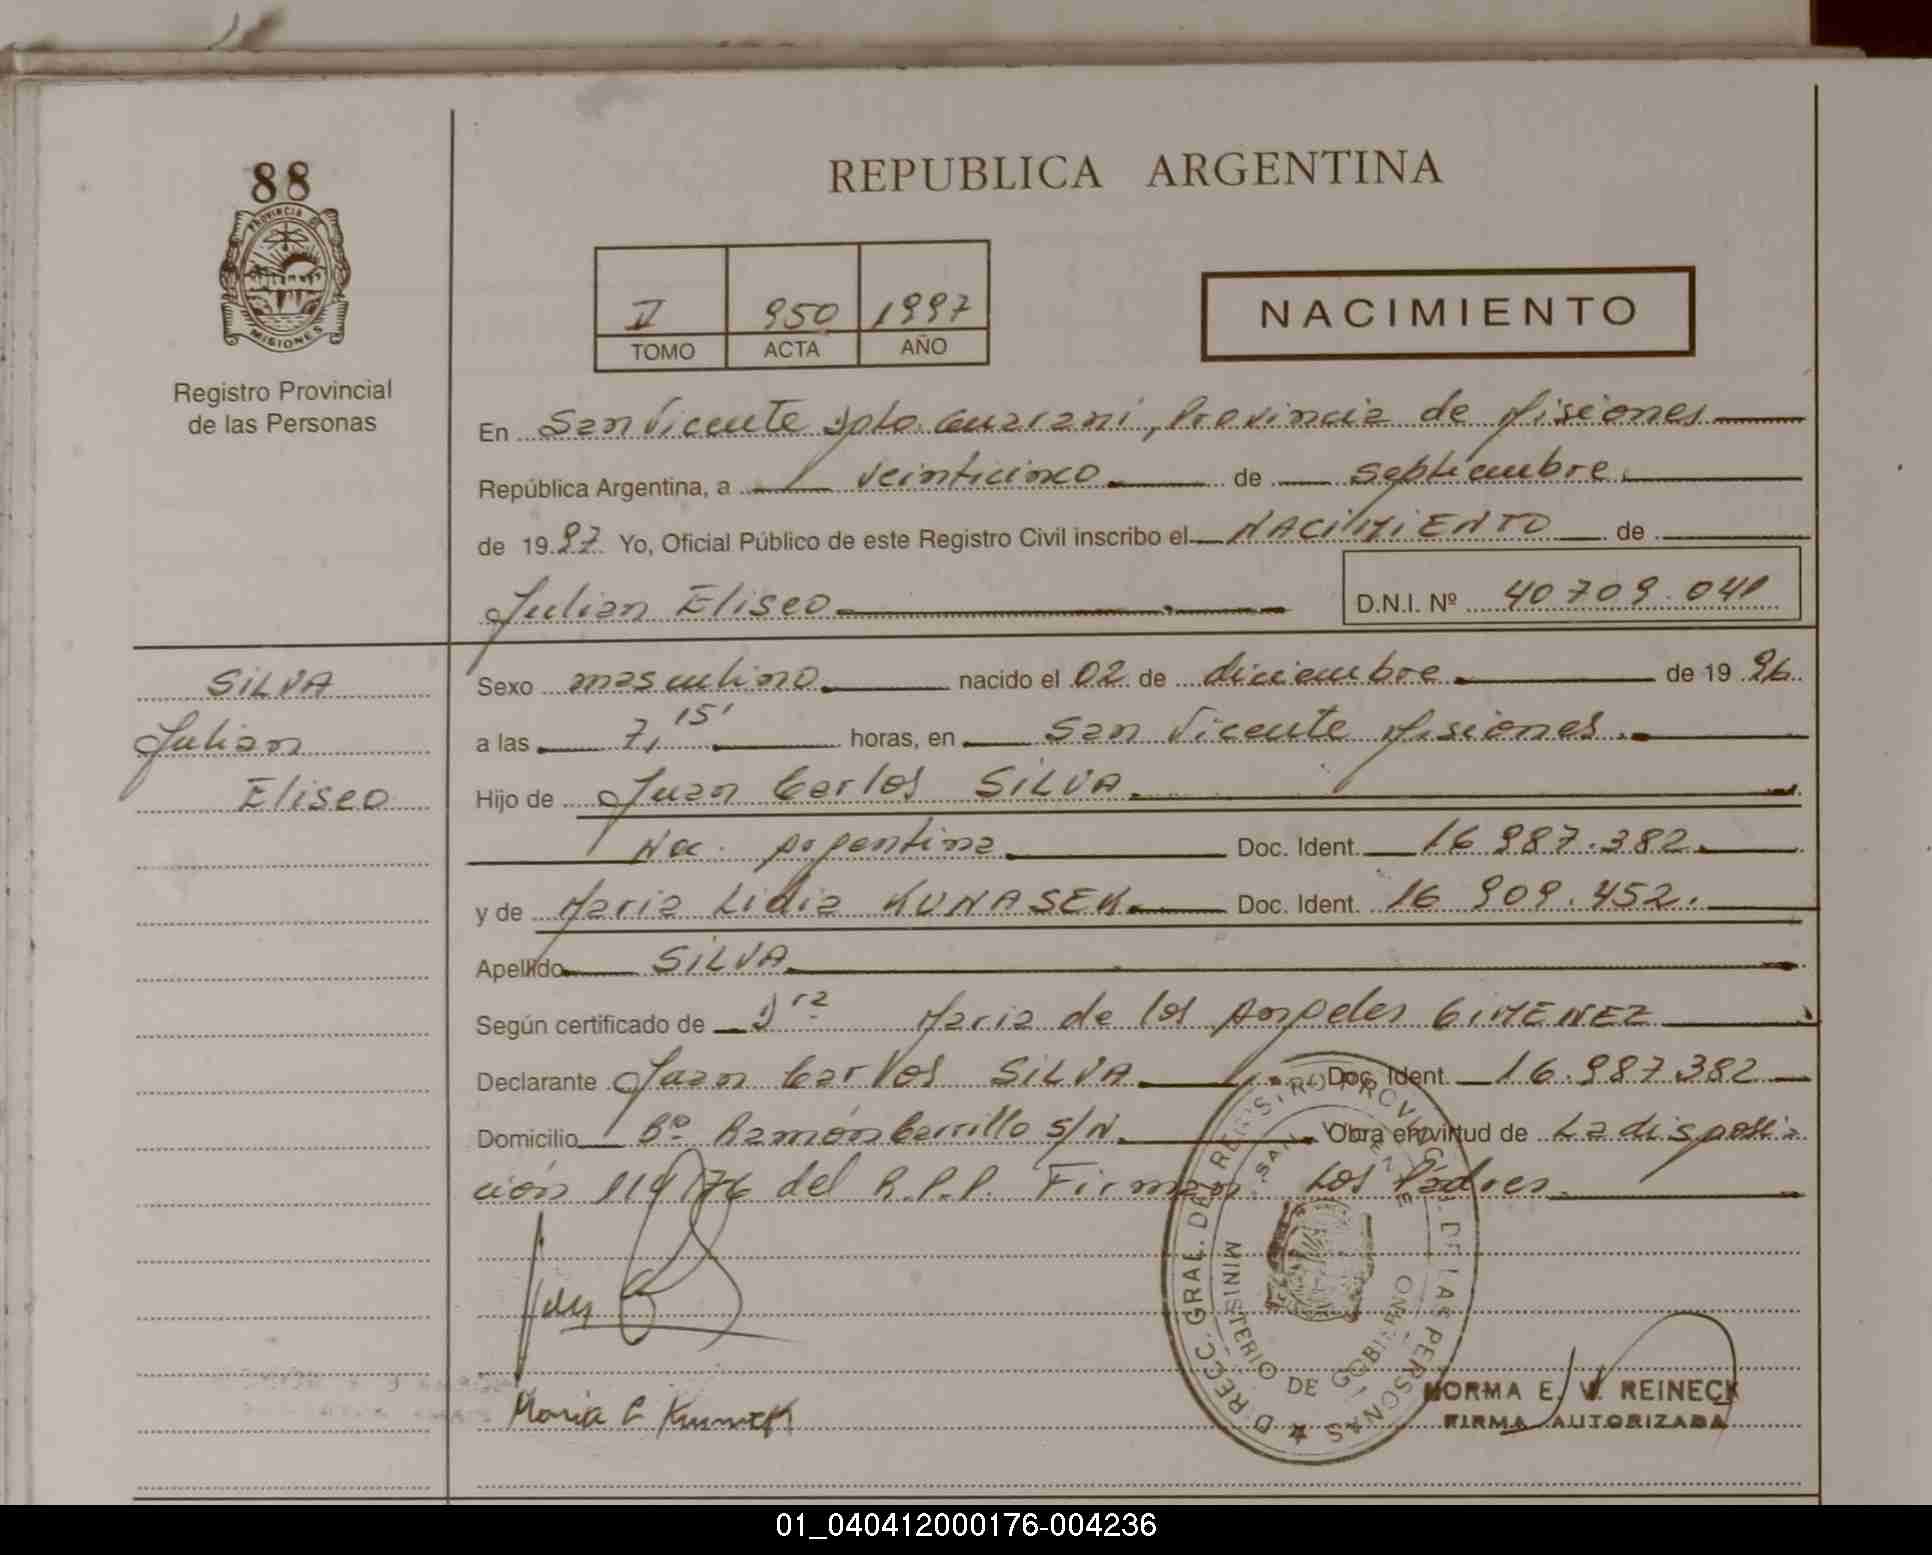 88
PROVINCIA DE
MISIONES
Registro Provincial
de las Personas
REPUBLICA ARGENTINA
II 950 1997
TOMO ACTA AÑO
NACIMIENTO
En San Vicente Dpto. Guarani, Provincia de Misiones
República Argentina, a veinticinco de septiembre
de 1997 Yo, Oficial Público de este Registro Civil inscribo el NACIMIENTO de
Julian Eliseo D.N.I. Nº 40709.041
SILVA
Julian
Eliseo
Sexo masculino nacido el 02 de diciembre de 1996
a las 7,15' horas, en San Vicente Misiones.
Hijo de Juan Carlos SILVA
Nac. Argentina Doc. Ident. 16 987.382
y de Maria Lidia KUNASEK Doc. Ident. 16 909.452.
Apellido SILVA
Según certificado de Dra Maria de los Angeles GIMENEZ
Declarante Juan Carlos SILVA Doc. Ident. 16.987.382
Domicilio Bº Ramón Carrillo S/N Obra en virtud de La disposi
ción 119/76 del R.P.P. Firman Los Padres
DIRECC. GRAL. DEL REGISTRO PROVINCIAL DE LAS PERSONAS
SAN VICENTE
MINISTERIO DE GOBIERNO
Maria L Kunasek
NORMA E. V. REINECK
FIRMA AUTORIZADA
01_040412000176-004236